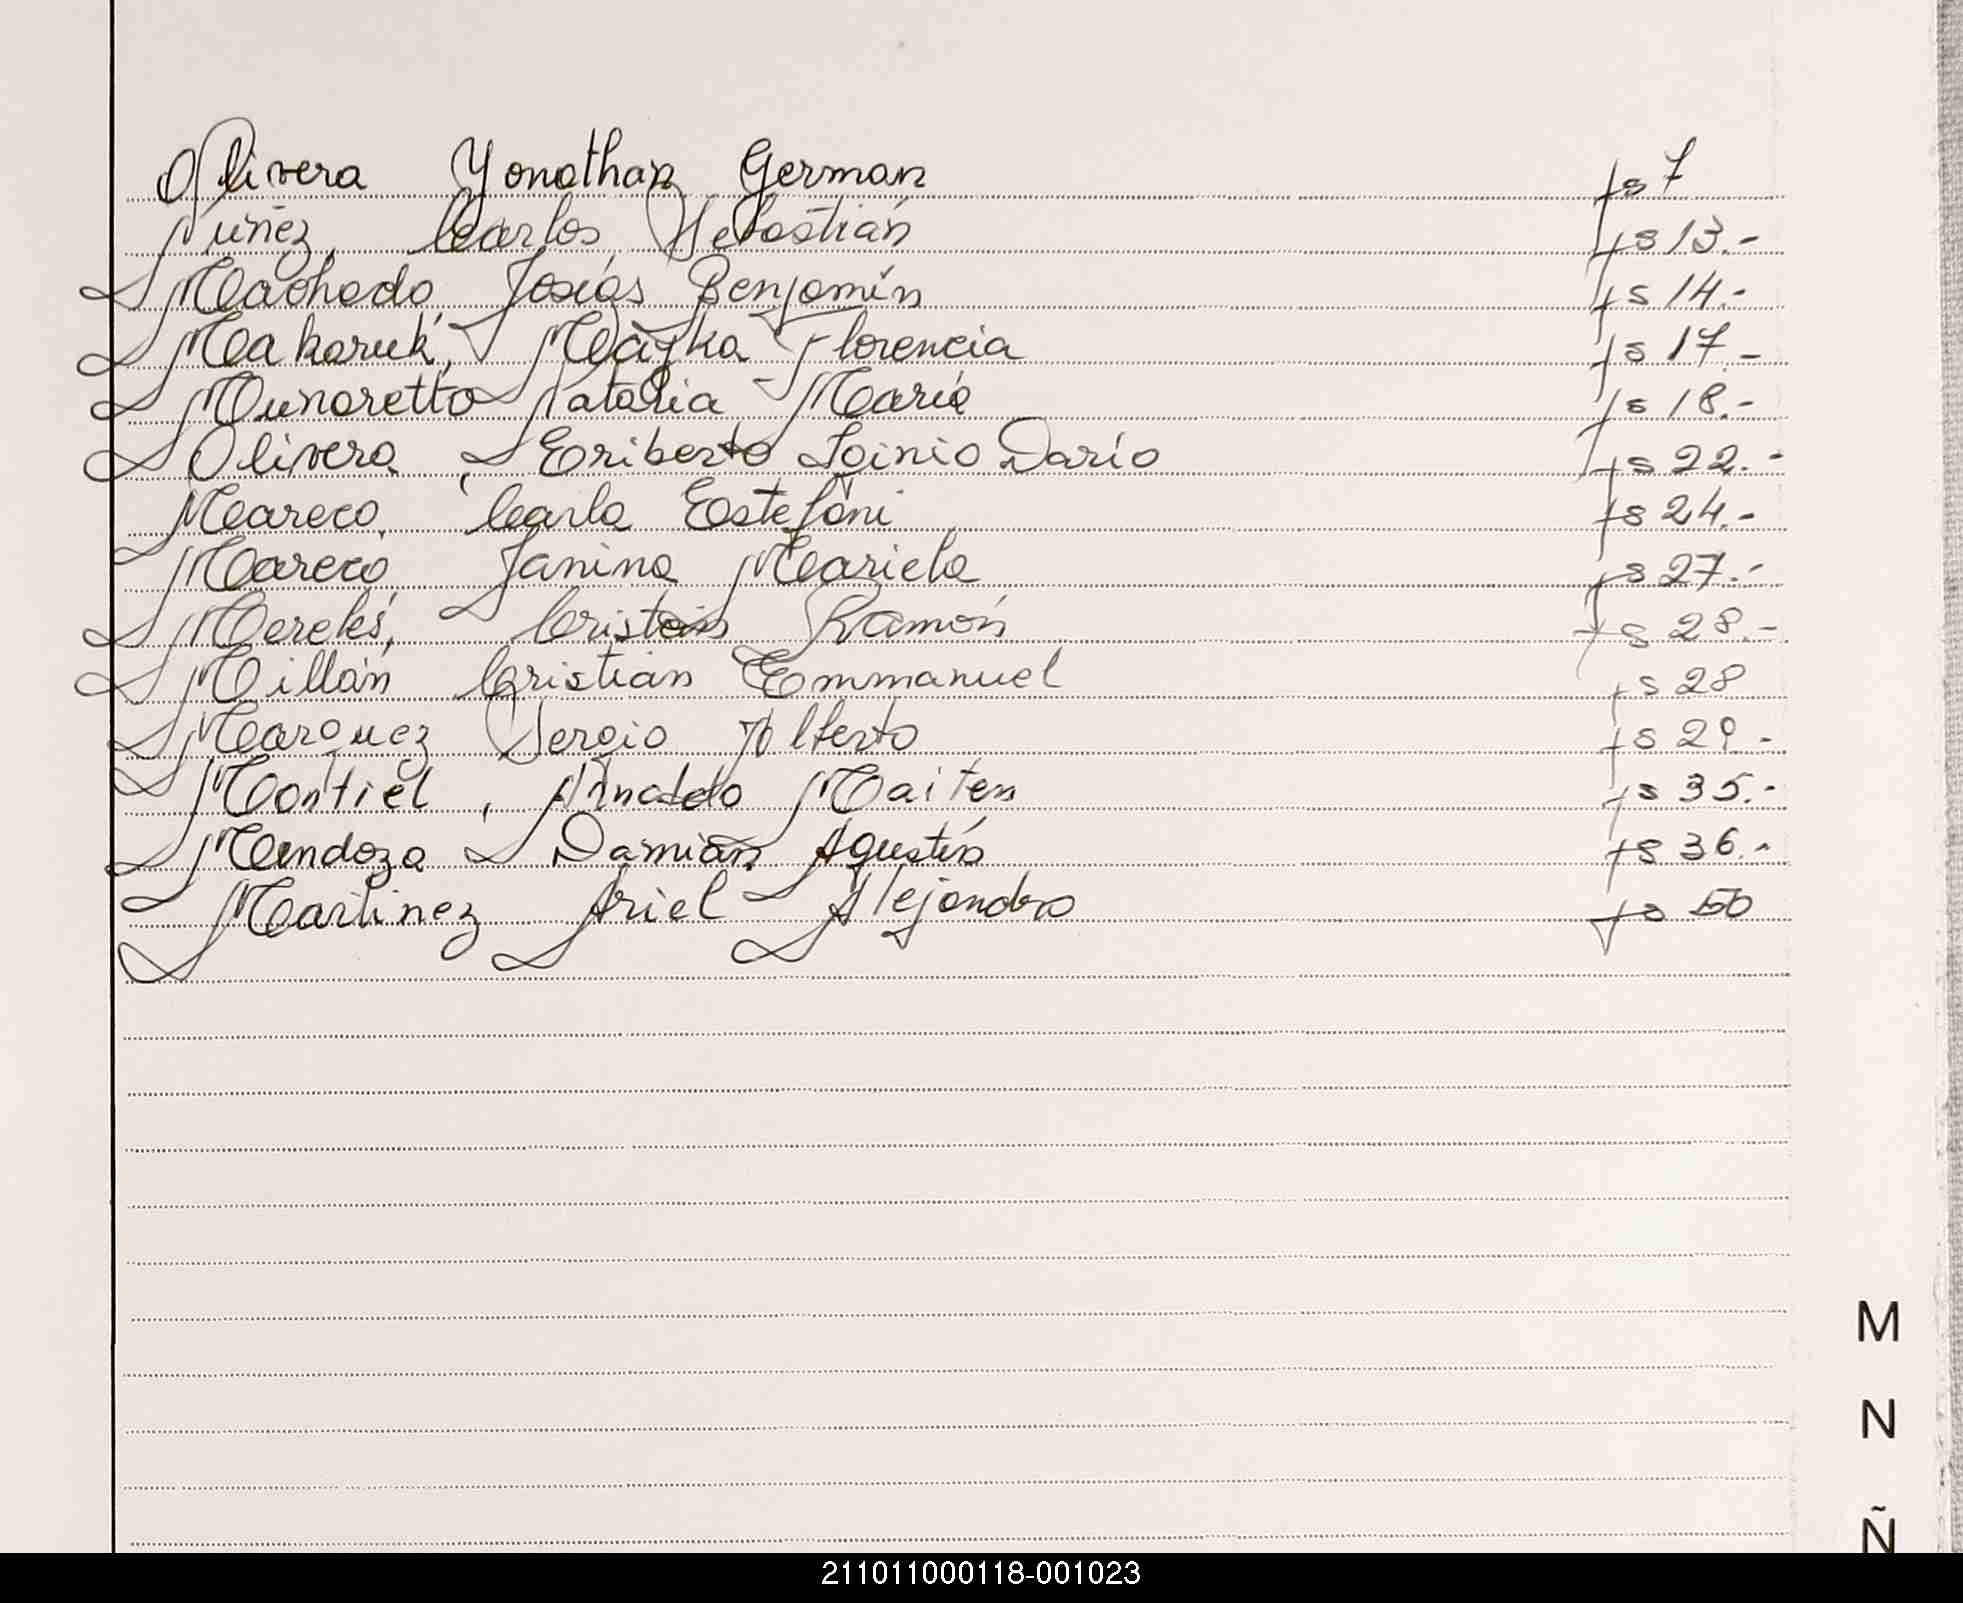 Olivera Yonathan German fs 7
Núñez, Carlos Sebastián fs 13.-
Machado, Josías Benjamín fs 14.-
Makaruk, Mayka Florencia fs 17-
Munaretto Natalia María fs 18.-
Olivera, Eriberto Iginio Darío fs 22.-
Mareco, Carla Estefani fs 24.-
Mareco, Janina Mariela fs 27.-
Mereles, Ramón fs 28.-
Millán Cristian Emmanuel fs 28
Marquez Sergio Alberto fs 29-
Montiel, Arnaldo Maiten fs 35.-
Mendoza Damián Agustín fs 36.-
Martinez Ariel Alejandro fs 50
M
N
Ñ
211011000118-001023